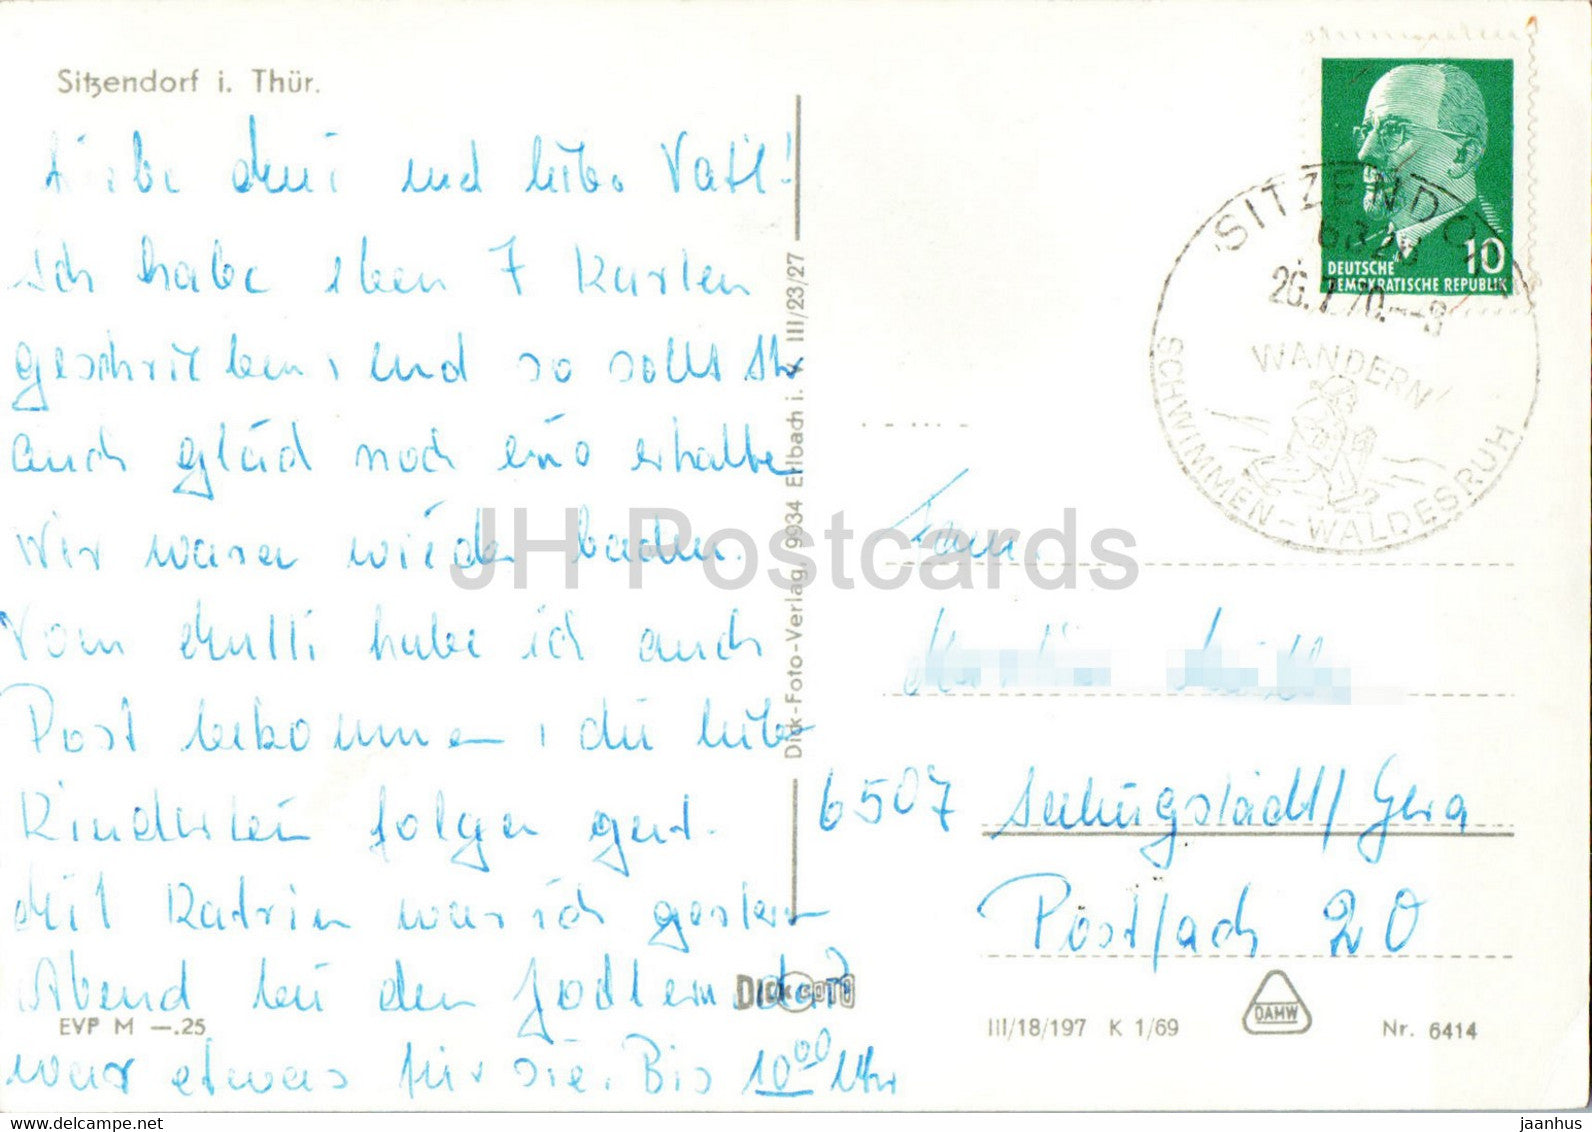 Sitzendorf i. Thür.
Liebe Mui und liebe Vati!
Ich habe eben 7 Karten
geschrieben, und so sollt Ihr
auch gläich noch eine erhalte
Wir waren wieder baden.
Vom Mutti habe ich auch
Post bekommen, die liebe
Kinderlein folgen gut.
Mit Katrin war ich gestern
Abend bei den Jodlern das
war etwas für sie. Bis 10⁰⁰ Uhr
EVP M —.25
Dick-Foto-Verlag, 9934 Erlbach i. V. III/23/27
DICK FOTO
DEUTSCHE
DEMOKRATISCHE REPUBLIK
10
SITZENDORF
6326
26.7.70.--8
WANDERN
SCHWIMMEN - WALDESRUH
Fam.
6507 /Gera
Postfach 20
III/18/197 K 1/69
DAMW
Nr. 6414
JH Postcards
www.delcampe.net
jaanhus